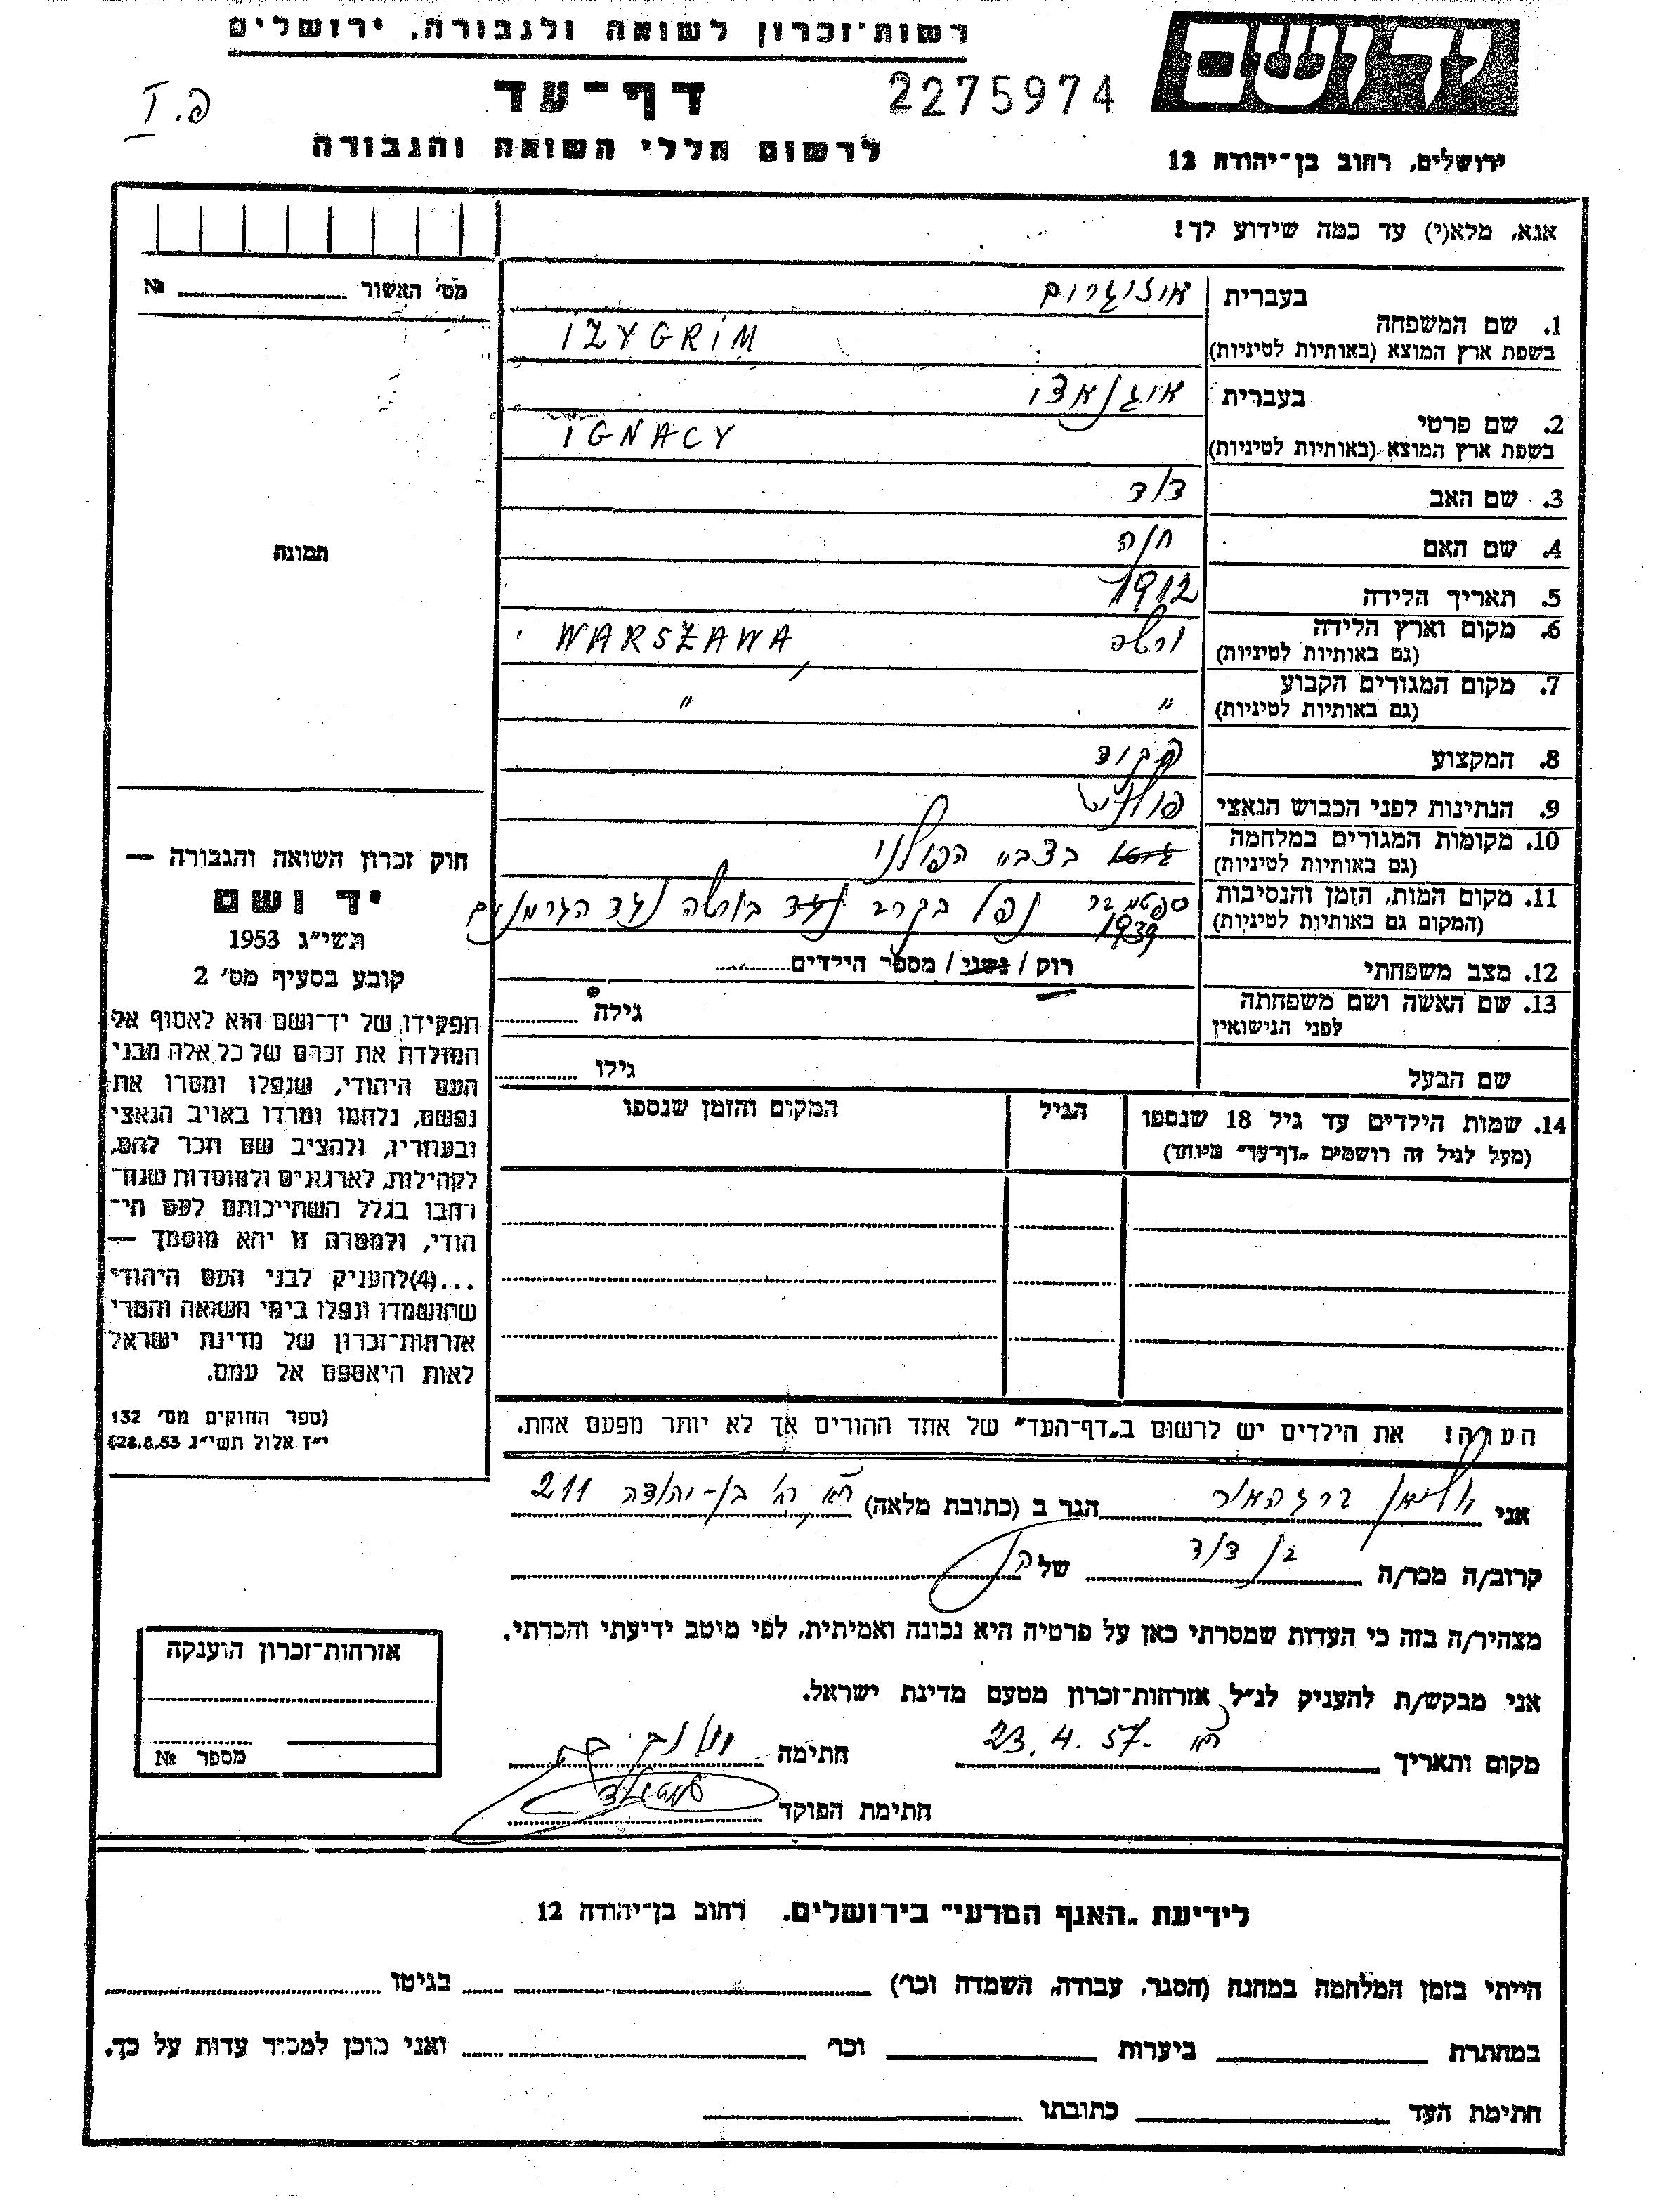 רשות־זכרון לשואה ולגבורה, ירושלים
יד ושם
דף־עד
2275974
פ. I
לרשום חללי השואה והגבורה
ירושלים, רחוב בן־יהודה 12
אנא, מלא(י) עד כמה שידוע לך!
מס׳ האשור № 
בעברית איזיגרים
1. שם המשפחה
בשפת ארץ המוצא (באותיות לטיניות) IZYGRIM
בעברית איגנאצי
2. שם פרטי
בשפת ארץ המוצא (באותיות לטיניות) IGNACY
3. שם האב דוד
4. שם האם חוה
5. תאריך הלידה 1912
6. מקום וארץ הלידה ורשה WARSZAWA,
(גם באותיות לטיניות)
7. מקום המגורים הקבוע " "
(גם באותיות לטיניות)
8. המקצוע פקיד
9. הנתינות לפני הכבוש הנאצי פולנית
10. מקומות המגורים במלחמה בצבא הפולני
(גם באותיות לטיניות)
11. מקום המות, הזמן והנסיבות ספטמבר 1939 נפל בקרב בורשה נגד הגרמנים
(המקום גם באותיות לטיניות)
12. מצב משפחתי רוק / נשוי / מספר הילדים
13. שם האשה ושם משפחתה גילה
לפני הנישואין
שם הבעל גילו
14. שמות הילדים עד גיל 18 שנספו הגיל המקום והזמן שנספו
(מעל לגיל זה רושמים „דף־עד״ מיוחד)
הערה! את הילדים יש לרשום ב„דף־העד״ של אחד ההורים אך לא יותר מפעם אחת.
תמונה
חוק זכרון השואה והגבורה —
יד ושם
תשי״ג 1953
קובע בסעיף מס׳ 2
תפקידו של יד־ושם הוא לאסוף אל
המולדת את זכרם של כל אלה מבני
העם היהודי, שנפלו ומסרו את
נפשם, נלחמו ומרדו באויב הנאצי
ובעוזריו, ולהציב שם וזכר להם,
לקהילות, לארגונים ולמוסדות שנח־
רבו בגלל השתייכותם לעם הי־
הודי, ולמטרה זו יהא מוסמך —
...(4)להעניק לבני העם היהודי
שהושמדו ונפלו בימי השואה והמרי
אזרחות־זכרון של מדינת ישראל
לאות היאספם אל עמם.
(ספר החוקים מס׳ 132
י״ז אלול תשי״ג 28.8.53)
אני הגר ב (כתובת מלאה) בן-יהודה 211
קרוב/ה מכר/ה בן דוד של
מצהיר/ה בזה כי העדות שמסרתי כאן על פרטיה היא נכונה ואמיתית, לפי מיטב ידיעתי והכרתי.
אני מבקש/ת להעניק לנ״ל אזרחות־זכרון מטעם מדינת ישראל.
מקום ותאריך 23.4.57 חתימה
חתימת הפוקד
אזרחות־זכרון הוענקה
מספר №
לידיעת „האגף המדעי״ בירושלים. רחוב בן־יהודה 12
הייתי בזמן המלחמה במחנה (הסגר, עבודה, השמדה וכר׳) בגיטו
במחתרת ביערות וכר׳ ואני מוכן למסור עדות על כך.
חתימת העד כתובתו